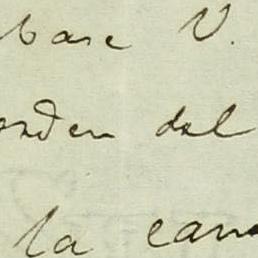 base V.
orden del
la cam